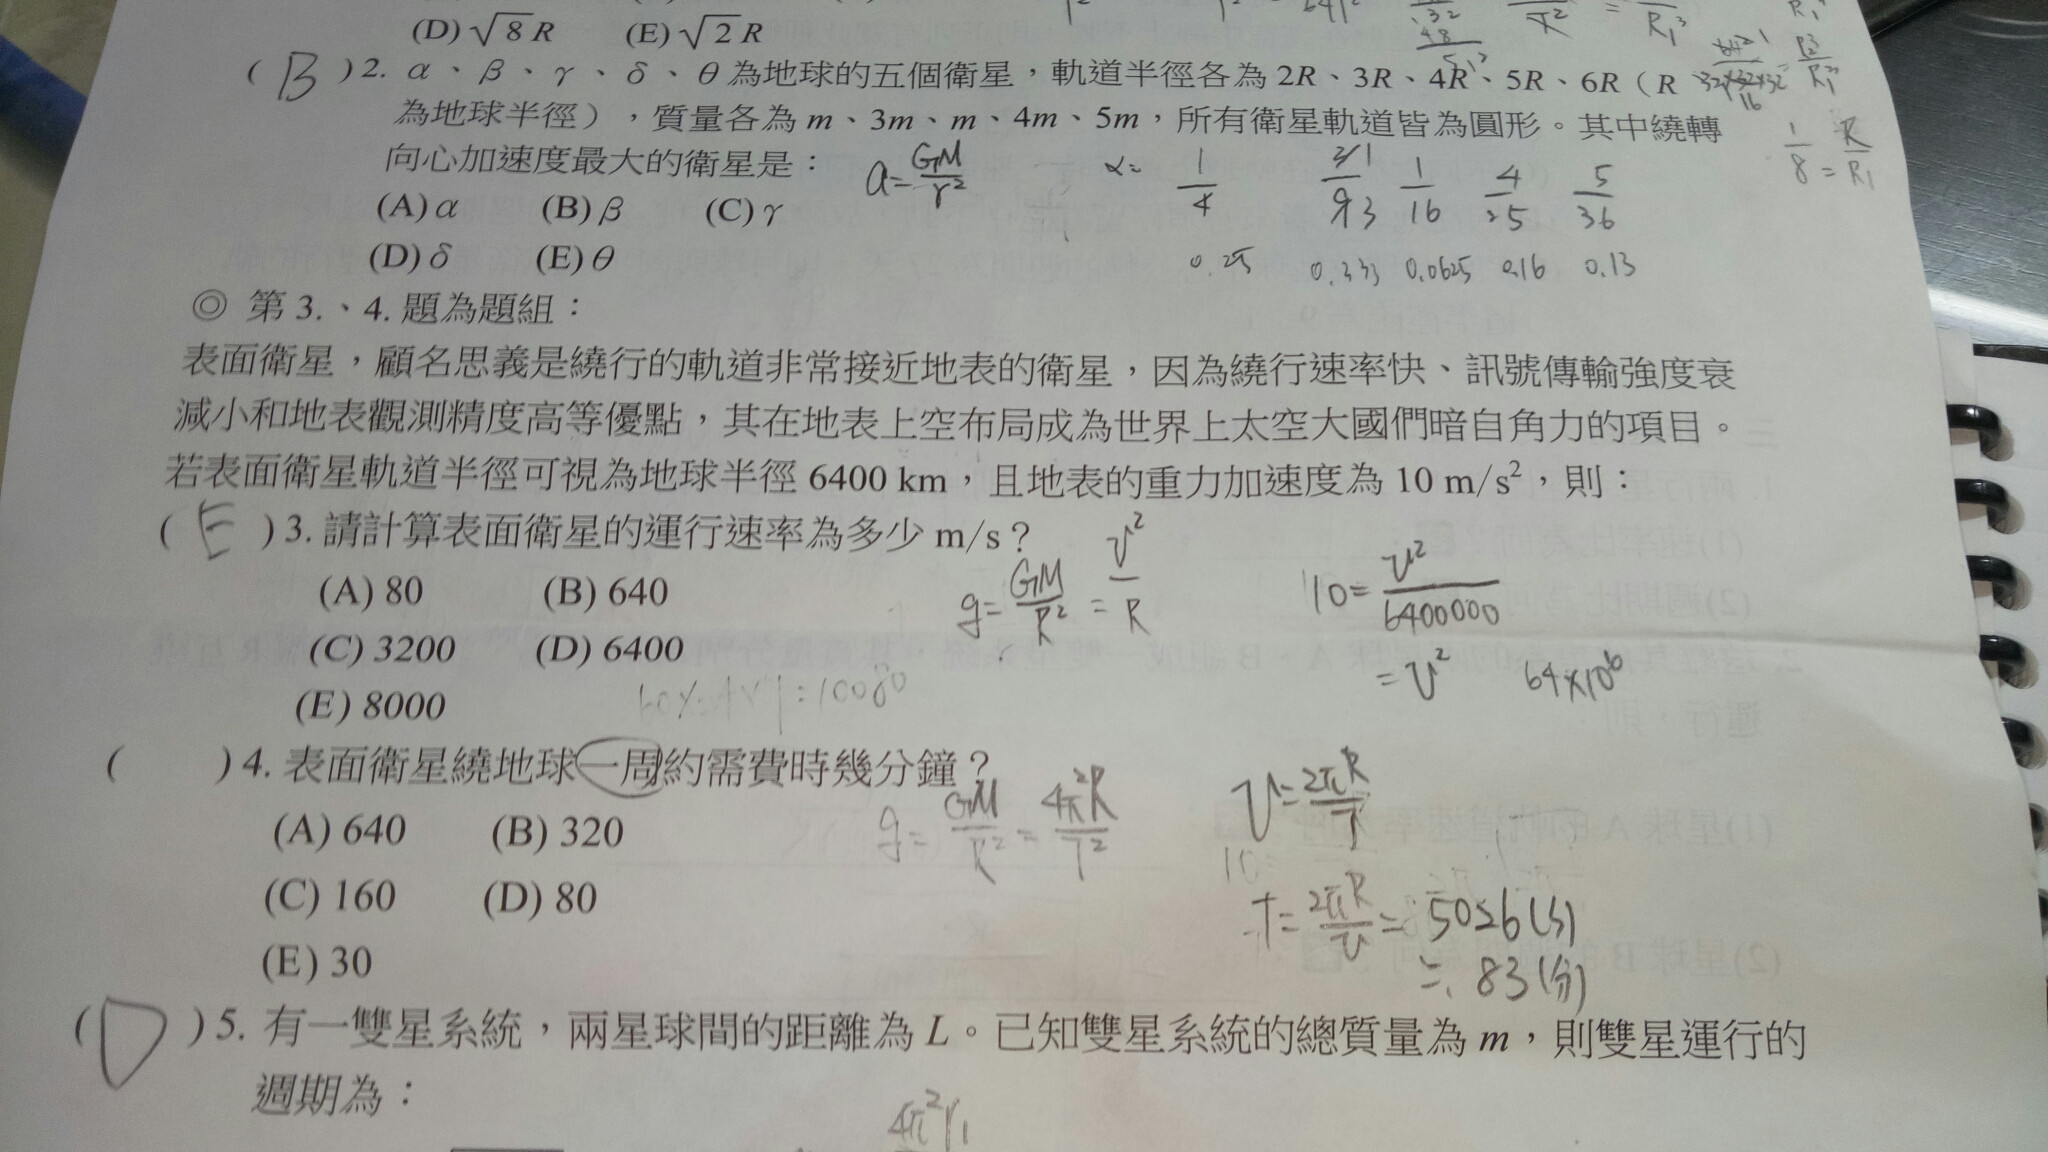 (D) √8 R (E) √2 R
( B ) 2. α、β、γ、δ、θ 為地球的五個衛星，軌道半徑各為 2R、3R、4R、5R、6R（R
為地球半徑），質量各為 m、3m、m、4m、5m，所有衛星軌道皆為圓形。其中繞轉
向心加速度最大的衛星是：
a = GM/r² α= 1/4 3/9 1/3 1/16 4/25 5/36
1/8 = R/R₁
(A) α (B) β (C) γ
(D) δ (E) θ
0.25 0.333 0.0625 0.16 0.13
◎ 第 3.、4. 題為題組：
表面衛星，顧名思義是繞行的軌道非常接近地表的衛星，因為繞行速率快、訊號傳輸強度衰
減小和地表觀測精度高等優點，其在地表上空布局成為世界上太空大國們暗自角力的項目。
若表面衛星軌道半徑可視為地球半徑 6400 km，且地表的重力加速度為 10 m/s²，則：
( E ) 3. 請計算表面衛星的運行速率為多少 m/s？
(A) 80 (B) 640
g = GM/R² = v²/R 10 = v²/6400000
(C) 3200 (D) 6400
= v² 64×10⁶
(E) 8000
( ) 4. 表面衛星繞地球一周約需費時幾分鐘？
g = GM/R² = 4π²R/T² v = 2πR/T
(A) 640 (B) 320
(C) 160 (D) 80
T = 2πR/v = 5026(s)
(E) 30
= 83(分)
( D ) 5. 有一雙星系統，兩星球間的距離為 L。已知雙星系統的總質量為 m，則雙星運行的
週期為：
4π²r₁